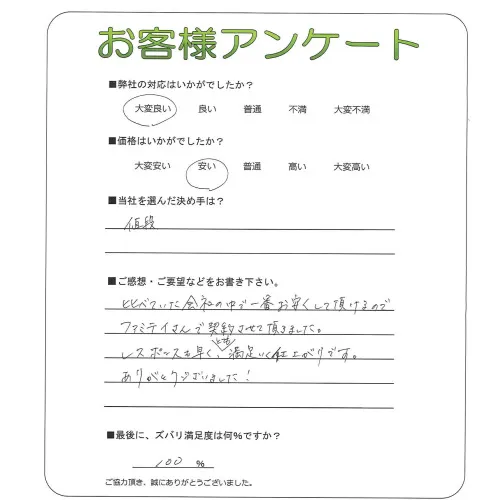 お客様アンケート
■弊社の対応はいかがでしたか？
大変良い 良い 普通 不満 大変不満
■価格はいかがでしたか？
大変安い 安い 普通 高い 大変高い
■当社を選んだ決め手は？
値段
■ご感想・ご要望などをお書き下さい。
比べていた会社の中で一番お安くして頂けるので
ファミテイさんで契約させて頂きました。
レスポンスも早く、とても満足いく仕上がりです。
ありがとうございました！
■最後に、ズバリ満足度は何％ですか？
100 %
ご協力頂き、誠にありがとうございました。